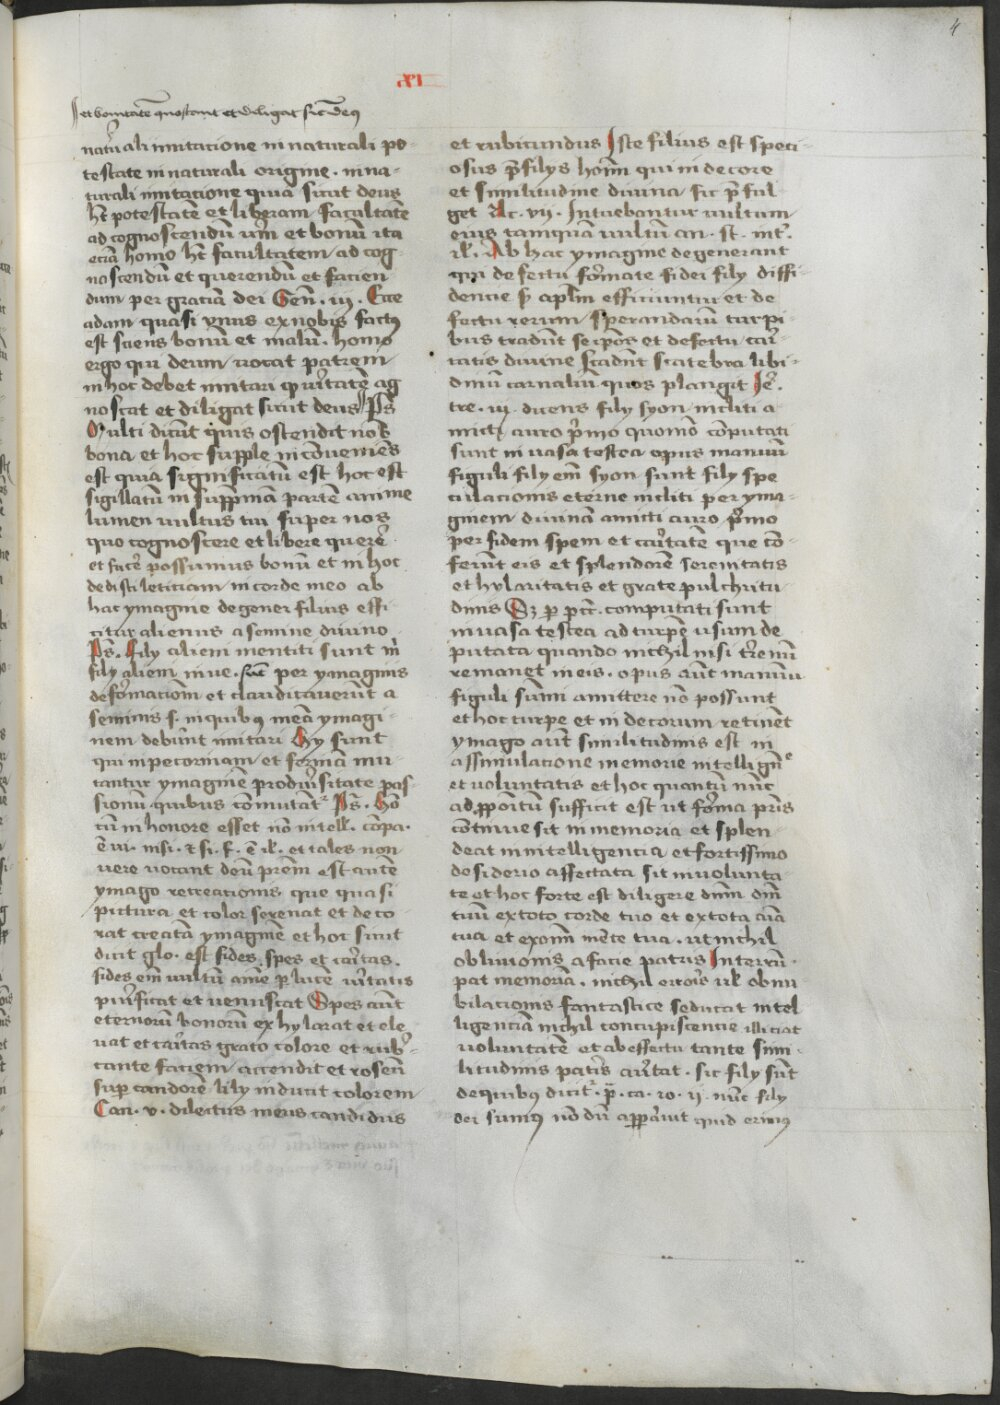 4
et bonitatem quoscant et diligat sicut deus
nat'ali imitacione in naturali po-
testate in naturali origine . in na-
turali imitacione quia sicut deus
ht̄ potestatē et liberam facultatē
ad cognoscendū verū et bonū ita
eciā homo ht̄ facultatem ad cog
noscendū et querendū et facien-
dum per graciā dei Gen̄ . iij . Ecce
adam quasi vnus ex nobis factus
est sciens bonū et malū . homo
ergo qui deum vocat patrem
in hoc debet imitari q' v'itatē ag
noscat et diligat sicut deus P̄s
Multi dicūt quis ostendit nob̄
bona et hoc supple inconueniēs
est quia significatū est hoc est
sigillatū in supp̄ma partē anime
lumen vultus tui super nos
quo cognoscere et libere querē
et facē possumus bonū et in hoc
dedisti leticiam in corde meo ab
hac ymagine degener filius effi
citur alienus a semine diuino
P̄s . fily alieni mentiti sunt m̄
fily alieni inue . sunt per ymaginis
deformaciōm et claudicauerūt a
seminis s . in quibus meā ymagi-
nem debūnt imitari Hy sunt
qui in pecoriam et formā mu-
tantur ymaginē pro diu'sitate pas-
sionū quibus cōmutant' P̄s . Ho
cū in honore esset nō intell . cōpa .
ē iu . insi . et si . f . ē il . et tales non
vere vocant deū prēm est autē
ymago recreacionis que quasi
pictura et color serenat et deco
rat creatā ymaginē et hoc sicut
dicit glo . est fides spes et caritas .
fides em̄ vultū anīe p lucē v'itatis
purificat et venuscat Spes aūt
eternorū bonorū exhylarat et ele
uat et caritas grato colore et rub'-
cante faciem accendit et roseū
sup candorē lily inducit colorem
Can . v . dilectus meus candidus
et rubicundus Iste filius est speci-
osus p̄ filys hoīm qui in decore
et similitudine diuina sic p̄ful
get Ac . vij . Intuebantur vultum
eius tamquā vultū an . st . int' .
il' . Ab hac ymagine degenerant
qui defectu formate fidei fily diffi
dencie s' aplm̄ efficiuntur et de
fectu rerum sperandarū turpi
bus tradūt se ip̄os et defectu cari-
tatis diuine scadūt scatebra libi-
dinū carnaliū quos plangit Ie' .
tre . iij . dicens fily syon incliti a
micti auro p'mo quomō cōputati
sunt in vasa testea opus manuū
figuli fily em̄ syon sunt fily spe
culacionis eterne incliti per yma-
ginem diuinā amicti auro p'mo
per fidem spem et caritatē que cō-
ferūt eis et splendorē serenitatis
et hylaritatis et grate pulchritu
dinis Sȝ p pcc̄ . computati sunt
in vasa testea ad turpē vsum de
putata quando nichil nisi t'renū
remanet in eis . opus aūt manuū
figuli sūmi amittere nō possunt
et hoc turpe et indecorum retinēt
ymago aūt similitudinis est in
assimulacione memorie intellignc̄e
et voluntatis et hoc quantū nūc
ad ppoitū sufficit est vt forma pris
cōtinue sit in memoria et splen
deat in intelligencia et fortissimo
desiderio affectata sit in volunta-
te et hoc forte est diligere dnm̄ dm̄
tuū ex toto corde tuo et ex tota aīa
tua et ex omī mēte tua . vt nichil
obliuionis a facie patris Interrū-
pat memoriā . nichil erroris vel obnu
bilacionis fantastice seducat intel
ligenciā nichil concupiscencie illiciat
voluntatē et ab effectu tante simi-
litudinis patris auertat . sic fily sūt
de quibus dicit' . p̄ . ca . io . ij . nūc fily
dei sumus nō dū apparuit quid erimus